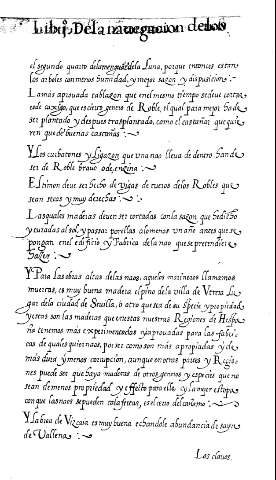 Lib. j. De la nauegacion de los
el segundo quarto del menguante de la Luna, porque entonces estan
los arboles con menos humidad, y mejor sazon y disposicion.
La mas aprouada tablazon que en el mesmo tiempo se deue cortar
es de que se deue genero de Roble, el qual para mejor ha de
ser plantado y despues trasplantado, como el castaño que quie
ren que de buenas castañas.
Y Los curbatones y ligazon que vna nao lleua de dentro han de
ser de Roble brauo o de enzina.
El timon deue ser hecho de vigas de cuerpo de los Robles que
sean secas y muy derechas
Las quales maderas deuen ser cortadas con la sazon que he dicho
y curadas al sol y passar por ellas alomenos vn año antes que se
pongan en el edificio y fabrica de la nao que se pretende
hazer.
Y Para las obras altas de las naos, aquellos marineros llamamos
muertas, es muy buena madera el pino de la villa de Vtrera lu
gar de la ciudad de Seuilla, o otro que sea de su specie y propiedad
y estas son las maderas que en estas nuestras Regiones de Hespa
ña tenemos mas experimentadas y aprouadas para las fabri
cas de quales quier naos, por ser como son mas apropiadas y de
mas dura y menos corrupcion, aunque en otras partes y Regio
nes puede ser que haya maderas de otros generos y especies que no
sean de menos propriedad y effecto para ello. y la mejor estopa
con que las naos se pueden calafetear, es el cerro del cañamo.
Y La brea de Vizcaya es muy buena echandole abundancia de sayn
de Vallena.
Los clauos